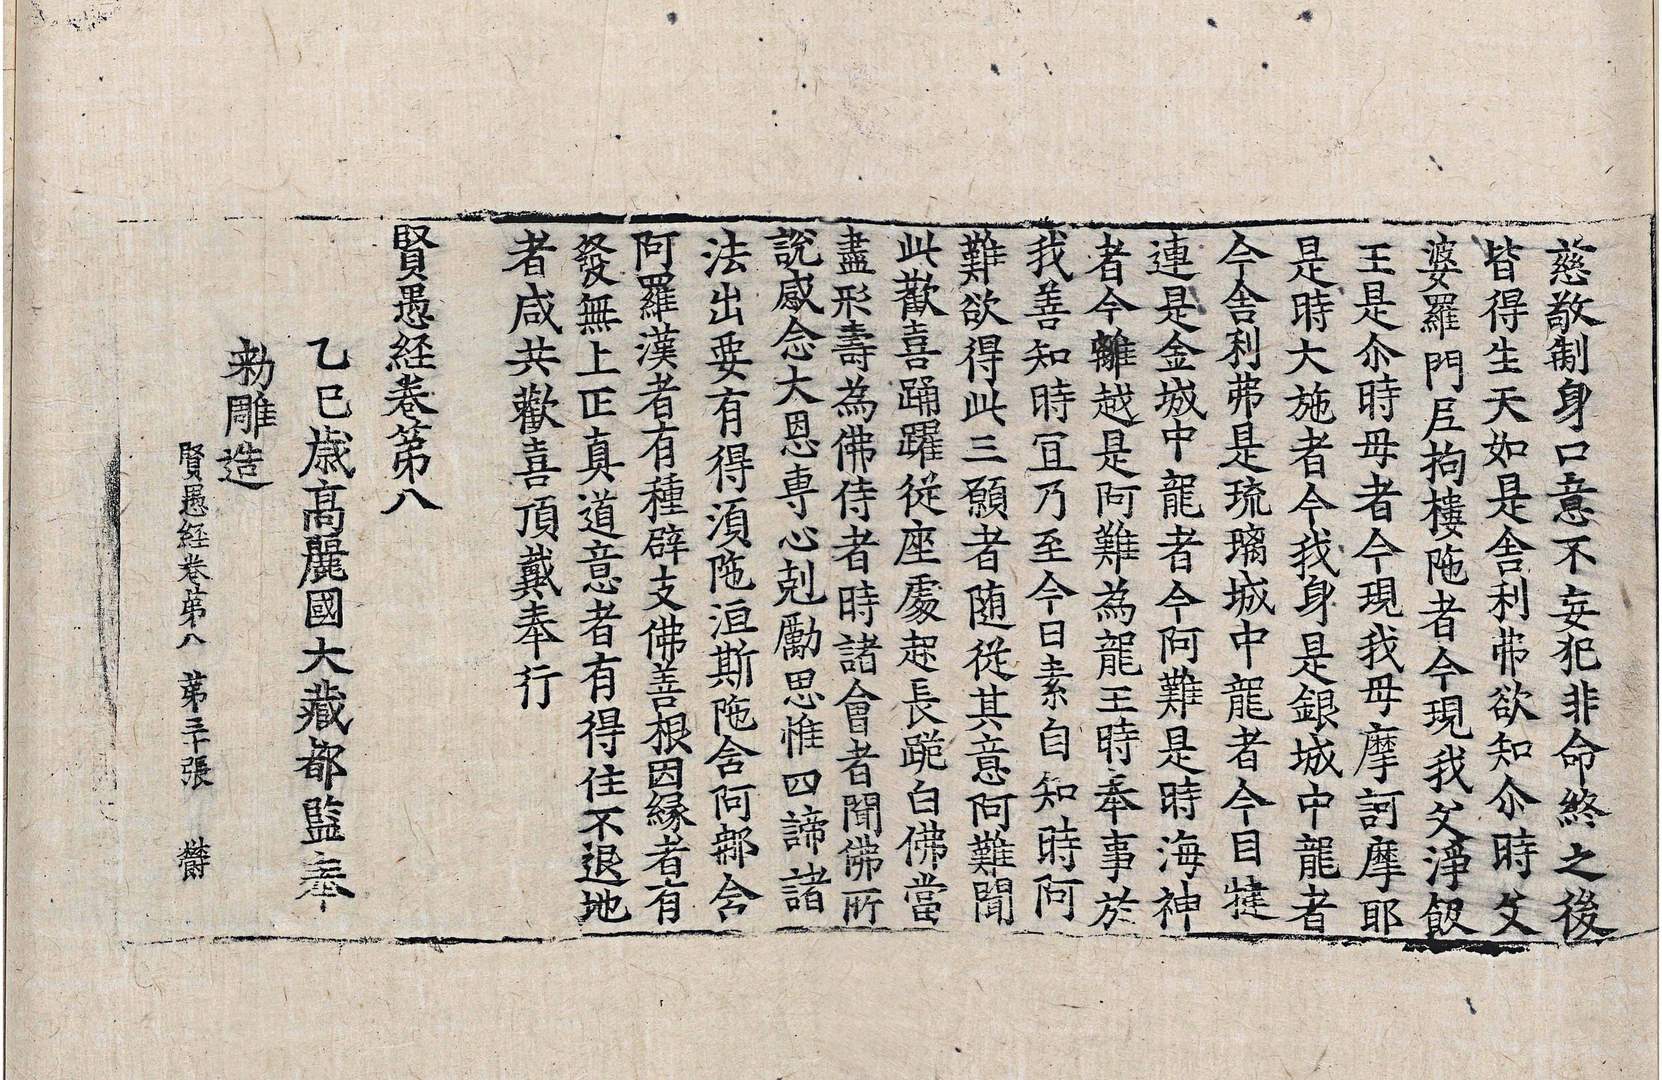 慈敬制身口意不妄犯非命終之後
皆得生天如是舍利弗欲知尒時父
婆羅門尼拘樓陁者今現我父淨飯
王是尒時母者今現我母摩訶摩耶
是時大施者今我身是銀城中龍者
今舍利弗是琉璃城中龍者今目揵
連是金城中龍者今阿難是時海神
者今離越是阿難為龍王時奉事於
我善知時冝乃至今日素自知時阿
難欲得此三願者随從其意阿難聞
此歡喜踊躍從座處起長跪白佛當
盡形壽為佛侍者時諸會者聞佛所
說感念大恩専心剋勵思惟四諦諸
法出要有得湏陁洹斯陁含阿那含
阿羅漢者有種辟支佛善根因縁者有
發無上正真道意者有得住不退地
者咸共歡喜頂戴奉行
賢愚経卷第八
乙巳歳髙麗國大藏都監奉
勑雕造
賢愚経卷第八 第三十張 欝